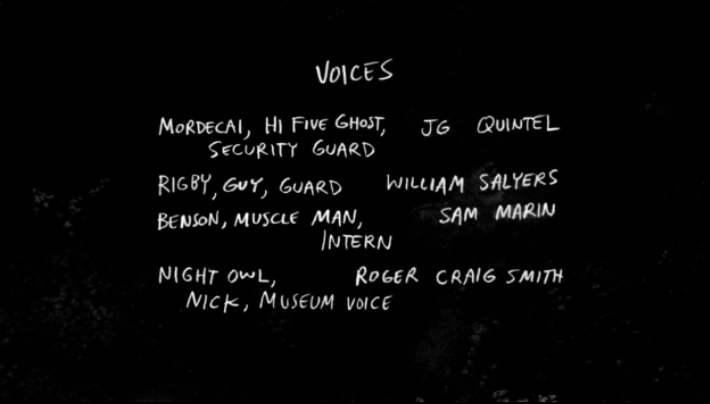 VOICES
MORDECAI, HI FIVE GHOST, JG QUINTEL
SECURITY GUARD
RIGBY, GUY, GUARD WILLIAM SALYERS
BENSON, MUSCLE MAN, SAM MARIN
INTERN
NIGHT OWL, ROGER CRAIG SMITH
NICK, MUSEUM VOICE